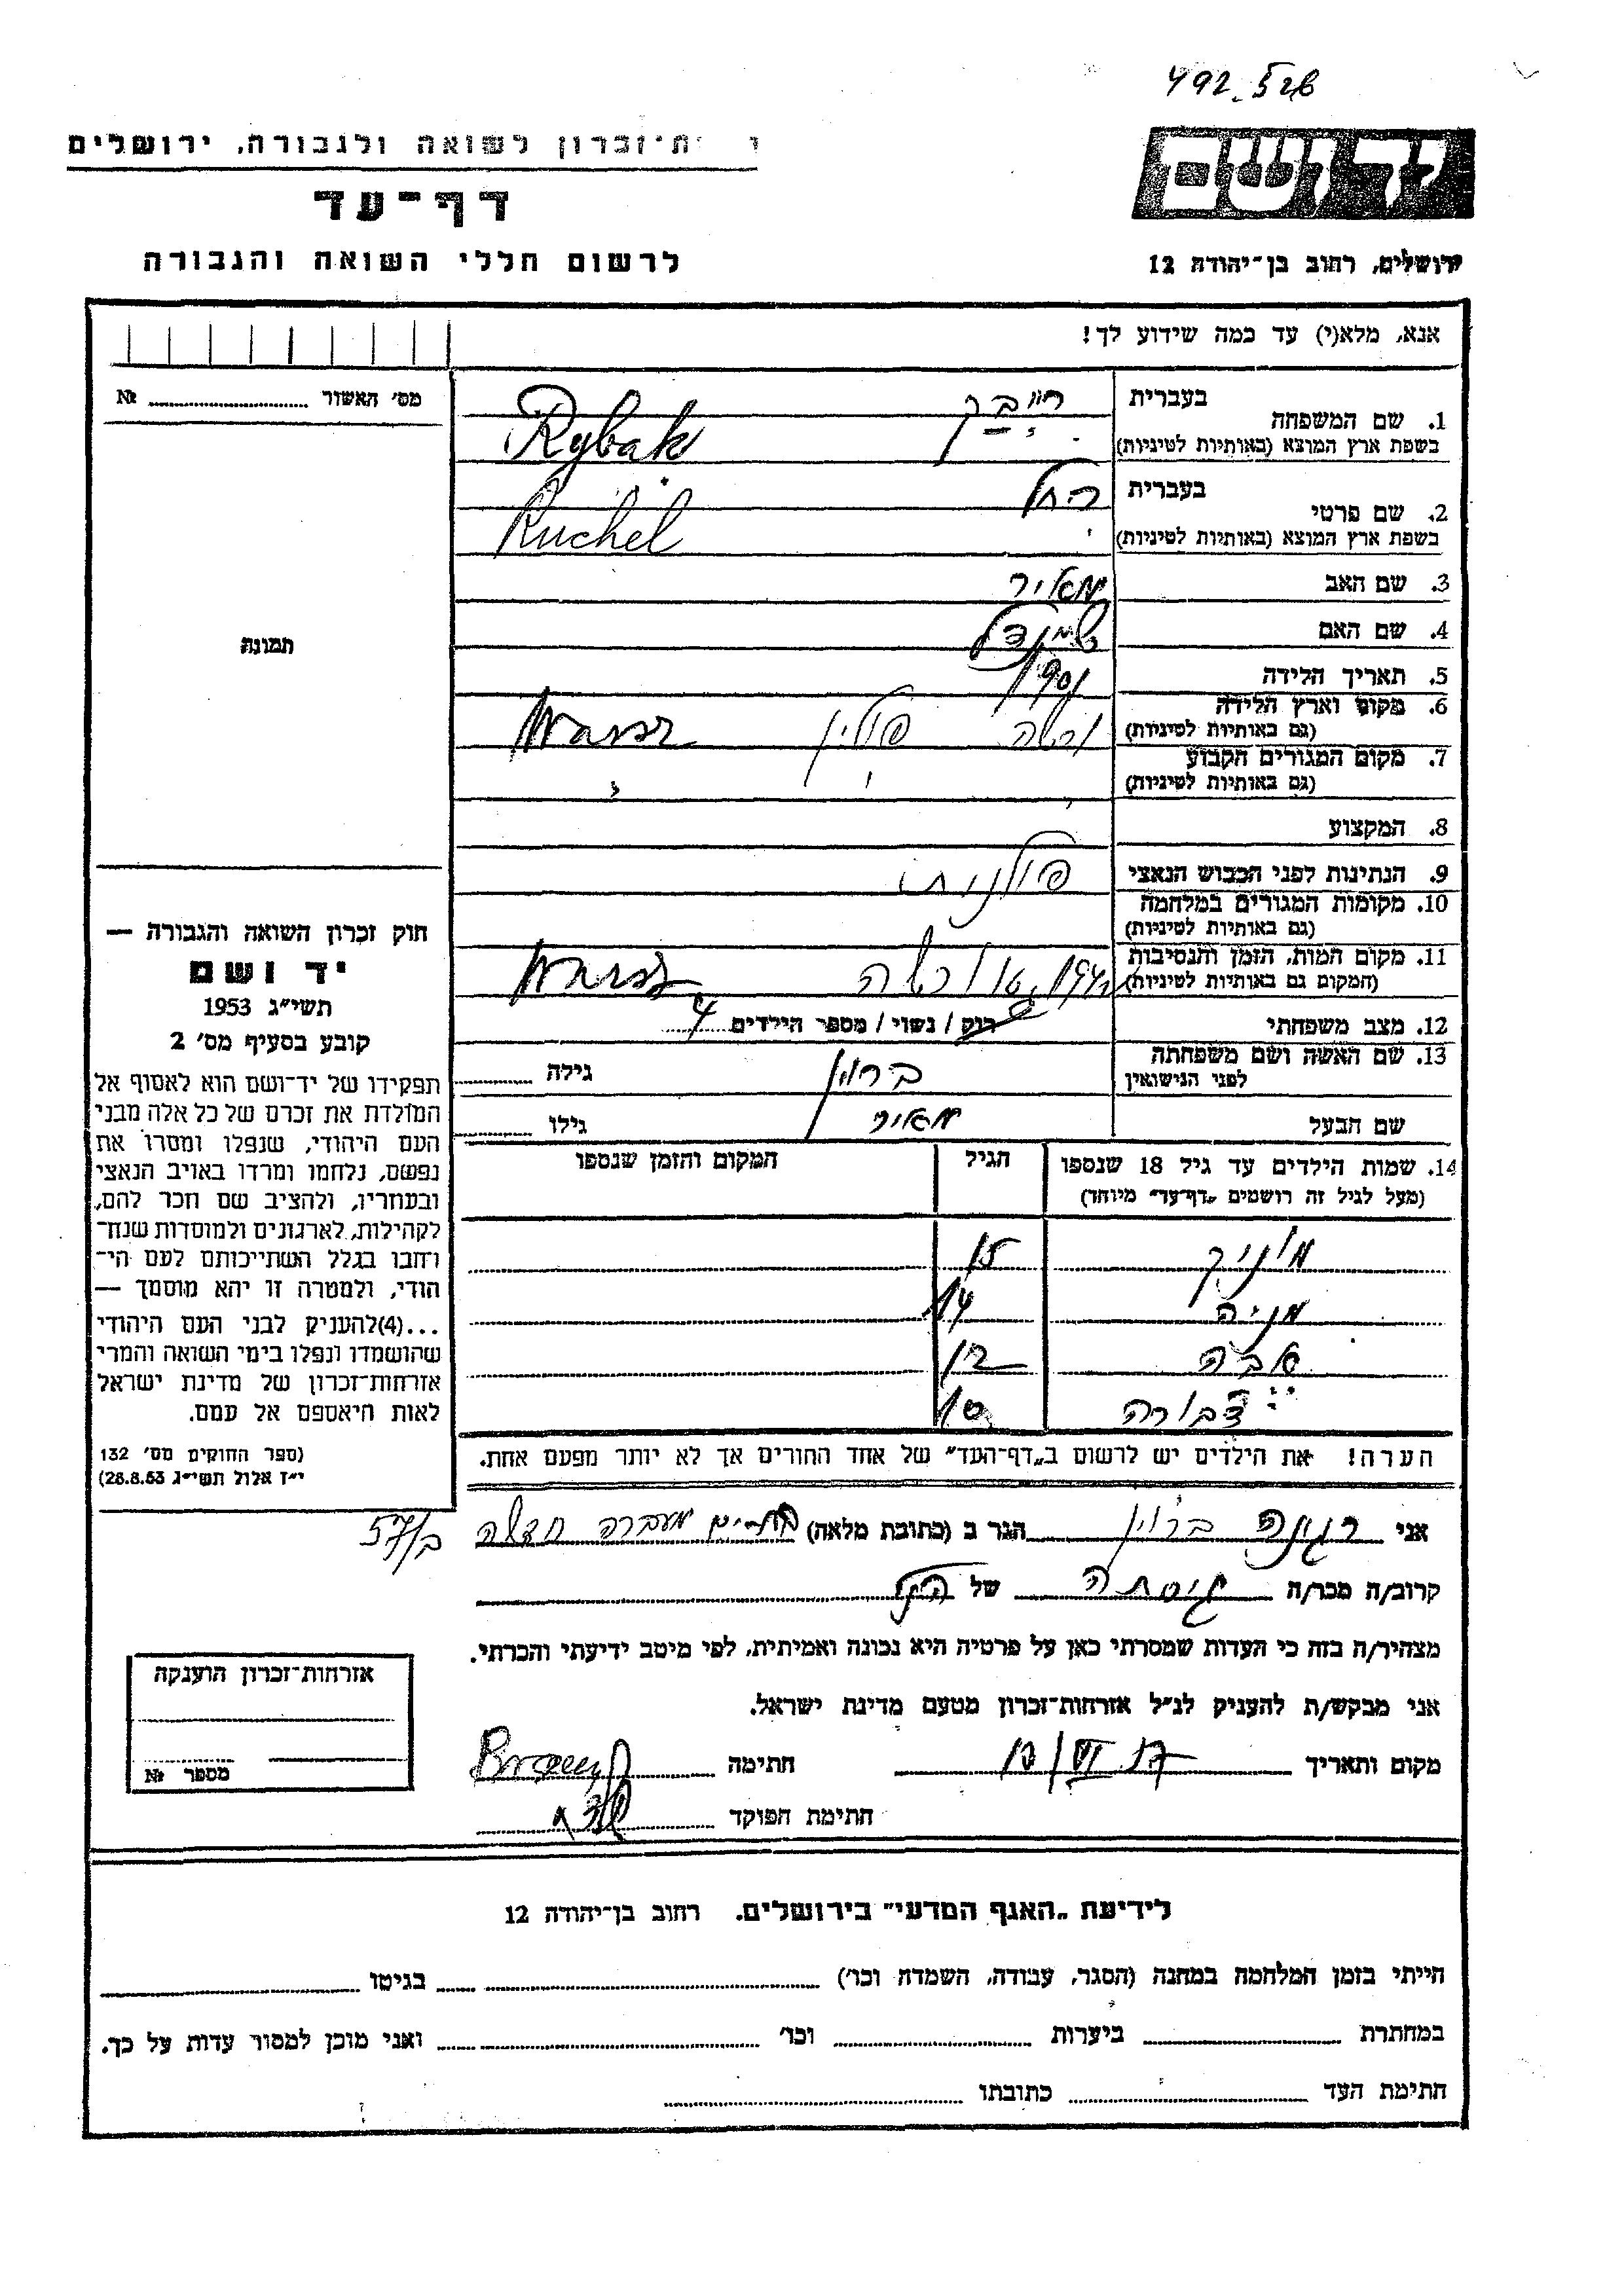 492.526
י ת־זכרון לשואה ולגבורה, ירושלים
דף־עד
לרשום חללי השואה והגבורה
ירושלים, רחוב בן־יהודה 12
אנא, מלא(י) עד כמה שידוע לך!
מס' האשור № 
תמונה
1. שם המשפחה בעברית ריבק
בשפת ארץ המוצא (באותיות לטיניות) Rybak
2. שם פרטי בעברית רחל
בשפת ארץ המוצא (באותיות לטיניות) Ruchel
3. שם האב מאיר
4. שם האם שינדל
5. תאריך הלידה 1901
6. מקום וארץ הלידה ורשה פולין Warsz
(גם באותיות לטיניות)
7. מקום המגורים הקבוע
(גם באותיות לטיניות)
8. המקצוע
9. הנתינות לפני הכבוש הנאצי פולנית
10. מקומות המגורים במלחמה
(גם באותיות לטיניות)
11. מקום המות, הזמן והנסיבות ורשה Warsz
(המקום גם באותיות לטיניות)
12. מצב משפחתי רוק / נשוי / מספר הילדים 4
13. שם האשה ושם משפחתה ברוין גילה
לפני הנישואין
שם הבעל מאיר גילו
14. שמות הילדים עד גיל 18 שנספו הגיל המקום והזמן שנספו
(מעל לגיל זה רושמים „דף־עד" מיוחד)
מוניק 15
מניה 14
אבה 12
דבורה 10
הערה! את הילדים יש לרשום ב„דף־העד" של אחד ההורים אך לא יותר מפעם אחת.
חוק זכרון השואה והגבורה —
יד ושם
תשי"ג 1953
קובע בסעיף מס' 2
תפקידו של יד־ושם הוא לאסוף אל
המולדת את זכרם של כל אלה מבני
העם היהודי, שנפלו ומסרו את
נפשם, נלחמו ומרדו באויב הנאצי
ובעוזריו, ולהציב שם וזכר להם,
לקהילות, לארגונים ולמוסדות שנח־
רבו בגלל השתייכותם לעם הי־
הודי, ולמטרה זו יהא מוסמך —
...(4)להעניק לבני העם היהודי
שהושמדו ונפלו בימי השואה והמרי
אזרחות־זכרון של מדינת ישראל
לאות היאספם אל עמם.
(ספר החוקים מס' 132
י"ז אלול תשי"ג 28.8.53)
אני רגינה ברוין הגר ב (כתובת מלאה) מעברה חדשה
קרוב/ה מכר/ה גיסתה של הנ"ל
מצהיר/ה בזה כי העדות שמסרתי כאן על פרטיה היא נכונה ואמיתית, לפי מיטב ידיעתי והכרתי.
אני מבקש/ת להעניק לנ"ל אזרחות־זכרון מטעם מדינת ישראל.
מקום ותאריך חתימה
חתימת הפוקד
אזרחות־זכרון הוענקה
מספר №
לידיעת „האגף המדעי" בירושלים, רחוב בן־יהודה 12
הייתי בזמן המלחמה במחנה (הסגר, עבודה, השמדה וכו') בגיטו
במחתרת ביערות וכו' ואני מוכן למסור עדות על כך.
חתימת העד כתובתו